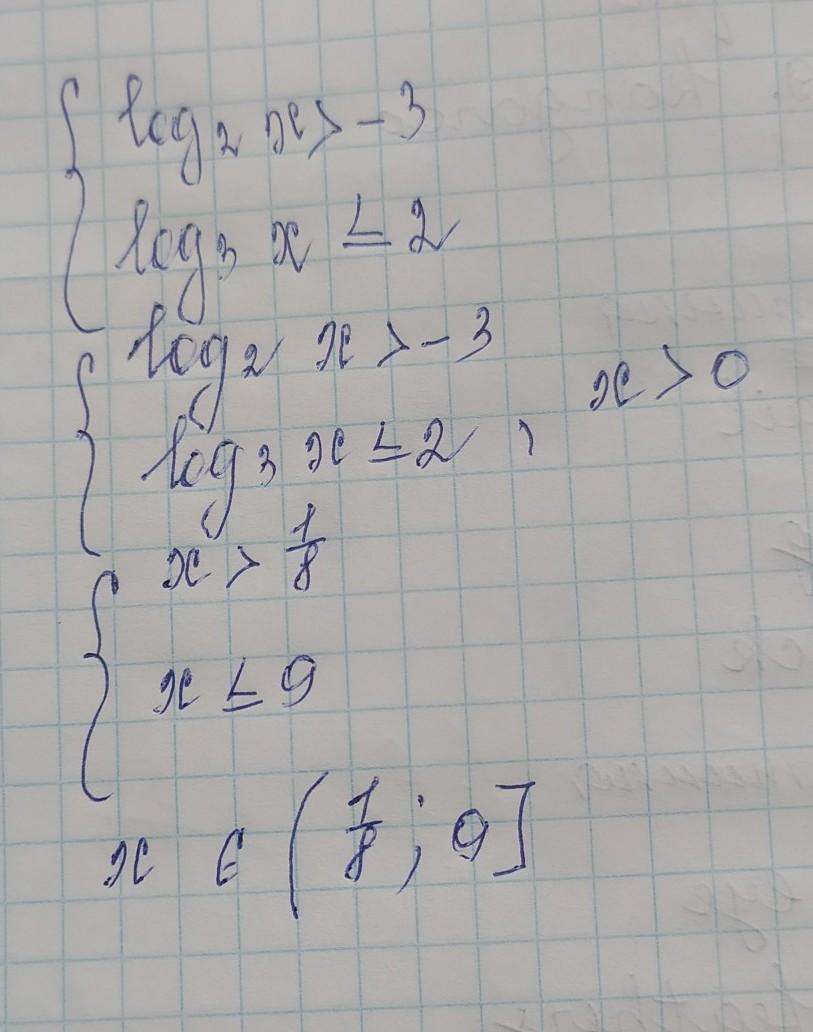 { log₂ x > -3
log₃ x ≤ 2
{ log₂ x > -3
log₃ x ≤ 2 , x > 0
{ x > 1/8
x ≤ 9
x ∈ (1/8; 9]